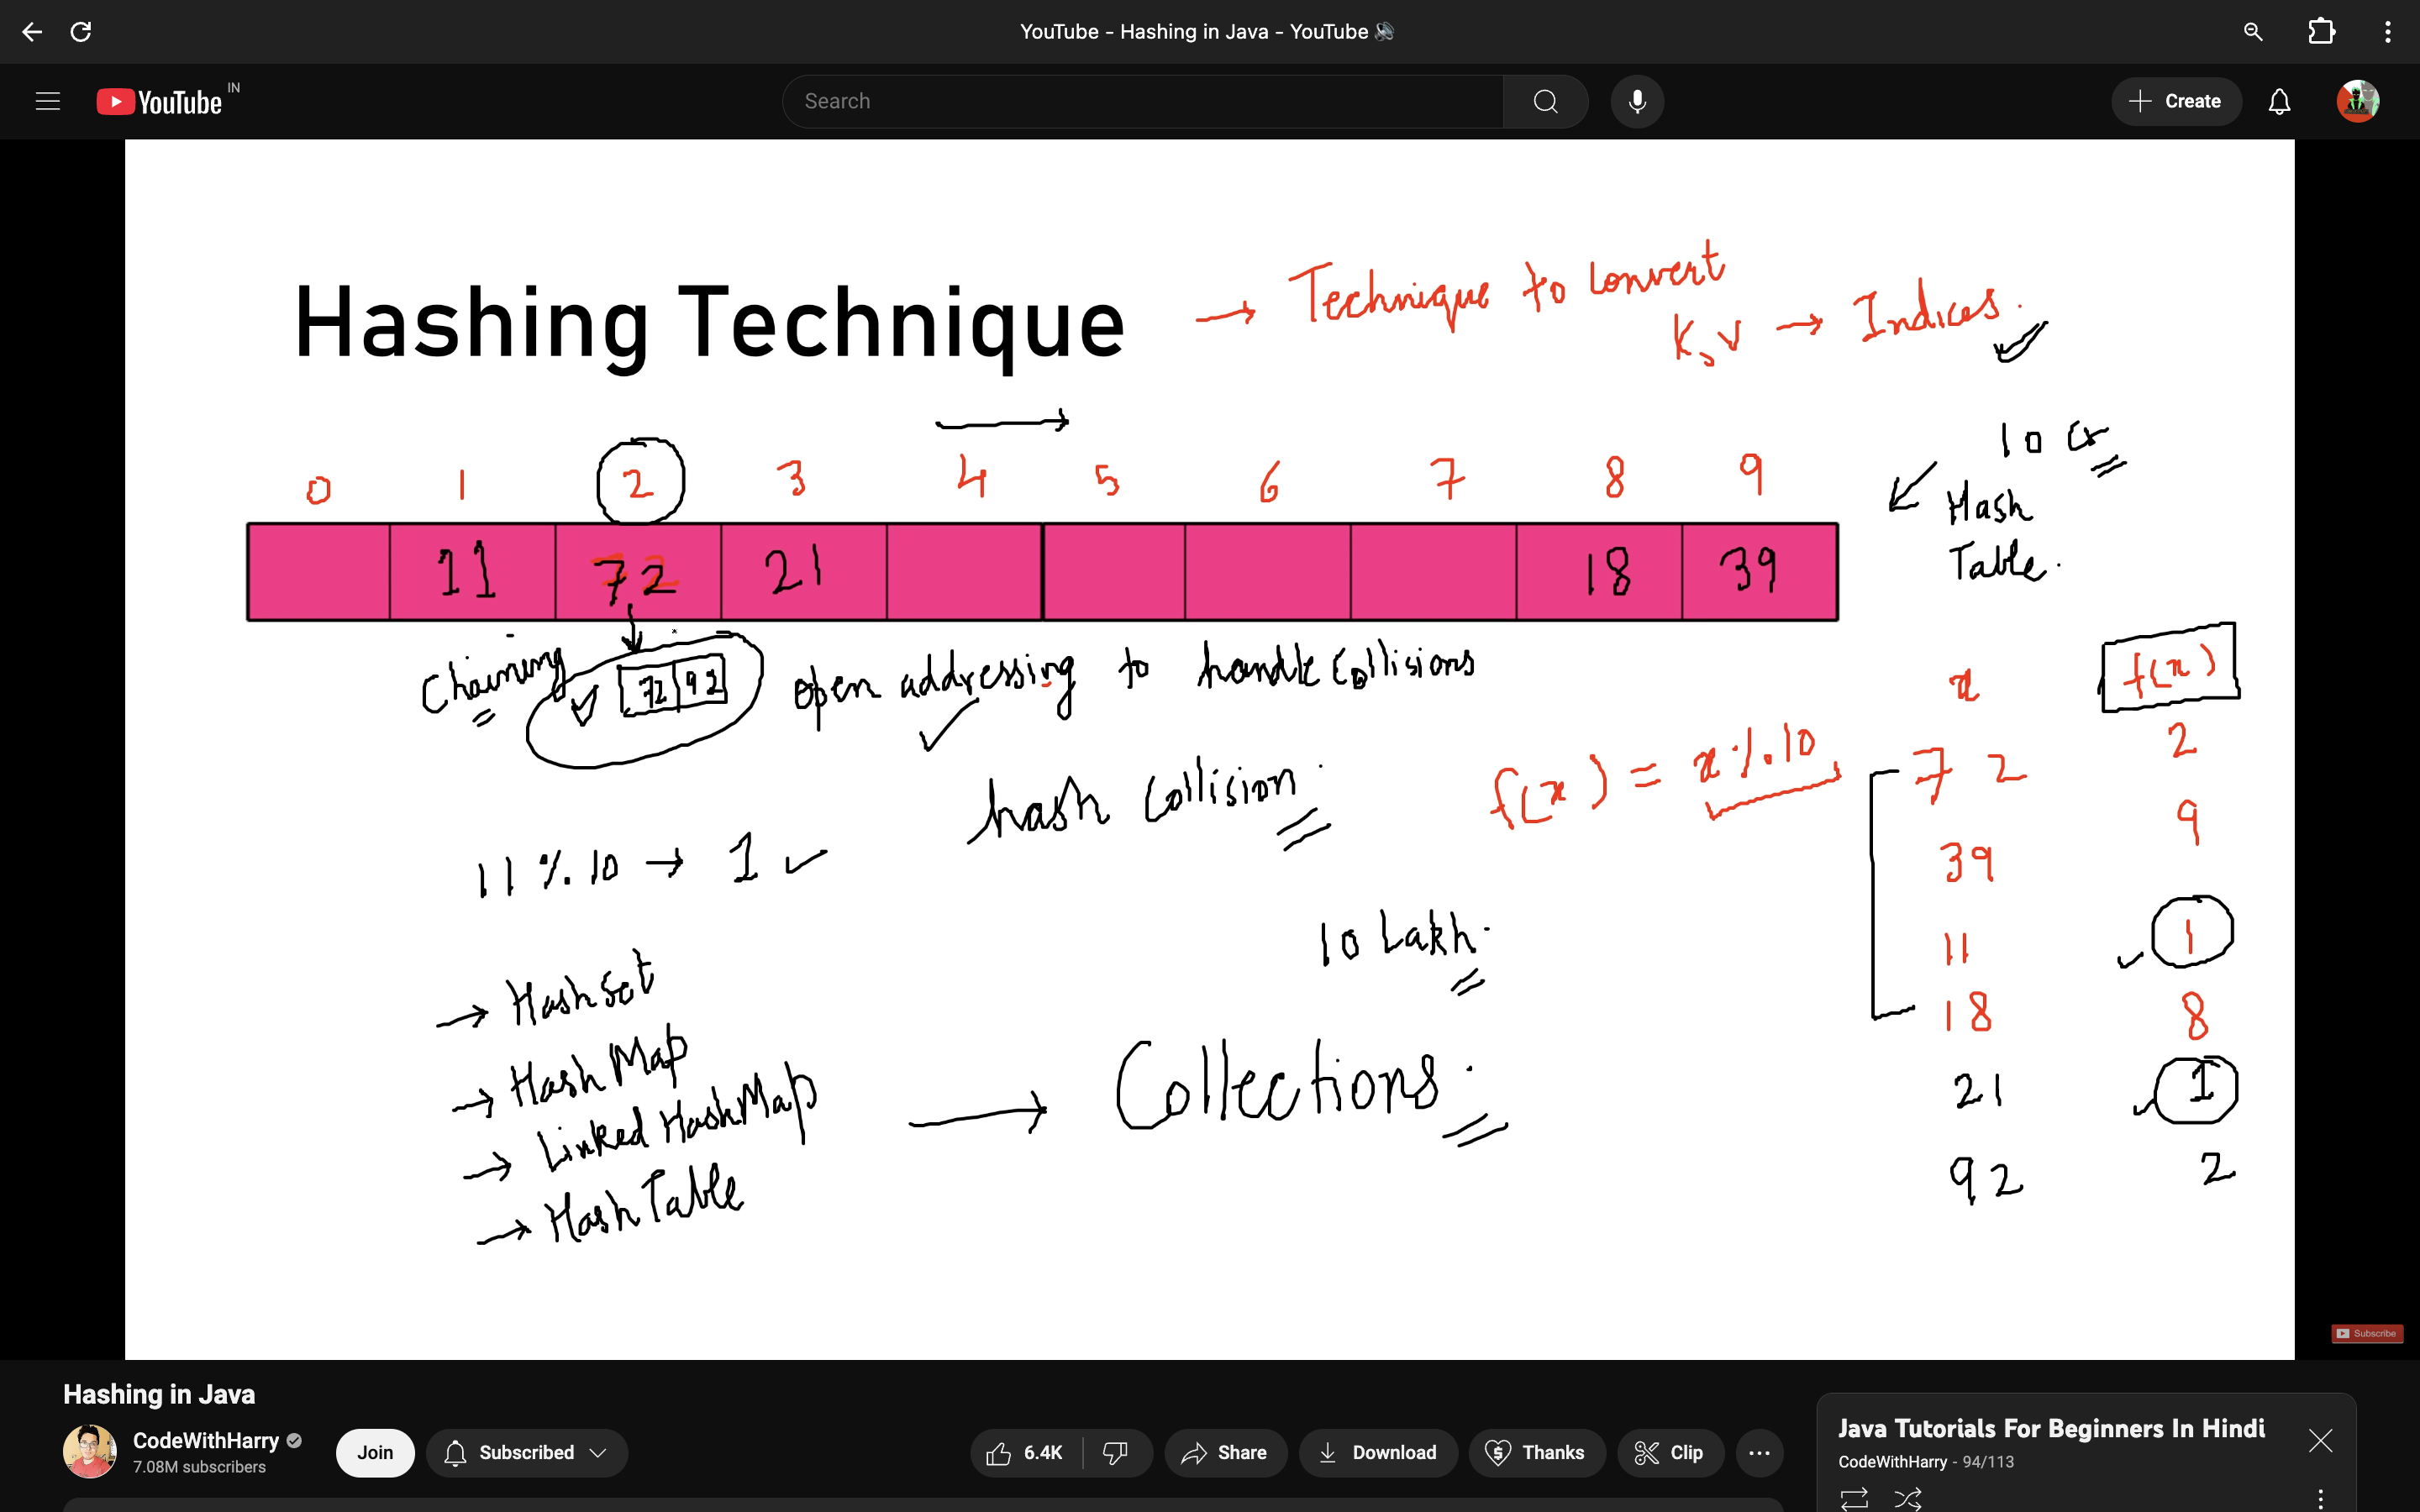 YouTube - Hashing in Java - YouTube
YouTube IN
Search
Create
Hashing Technique
→ Technique to convert
K,V → Indices.
10 Cr
Hash
Table.
0 1 2 3 4 5 6 7 8 9
11 72 21 18 39
Chaining
72 92
open addressing to handle collisions
hash collision.
f(x) = x%10
x f(x)
72 2
39 9
11 1
18 8
21 1
92 2
11 % 10 → 1
10 Lakh.
→ HashSet
→ HashMap
→ Linked HashMap
→ HashTable
→ Collections.
Subscribe
Hashing in Java
CodeWithHarry
7.08M subscribers
Join
Subscribed
6.4K
Share
Download
Thanks
Clip
Java Tutorials For Beginners In Hindi
CodeWithHarry - 94/113